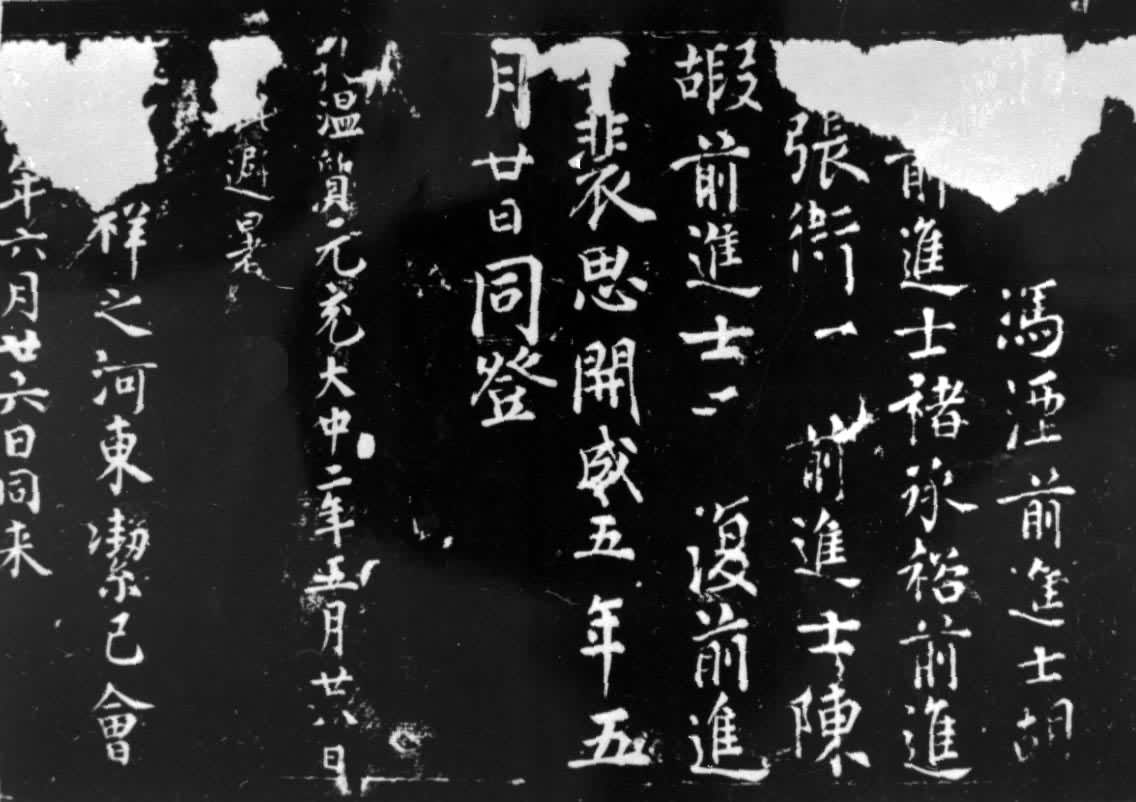 馮涯前進士胡
前進士褚承裕前進
張衡一前進士陳
嘏前進士二復前進
士裴思開成五年五
月廿日同登
溫質元充大中二年五月廿六日
避暑
祥之河東潔己會
年六月廿六日同来